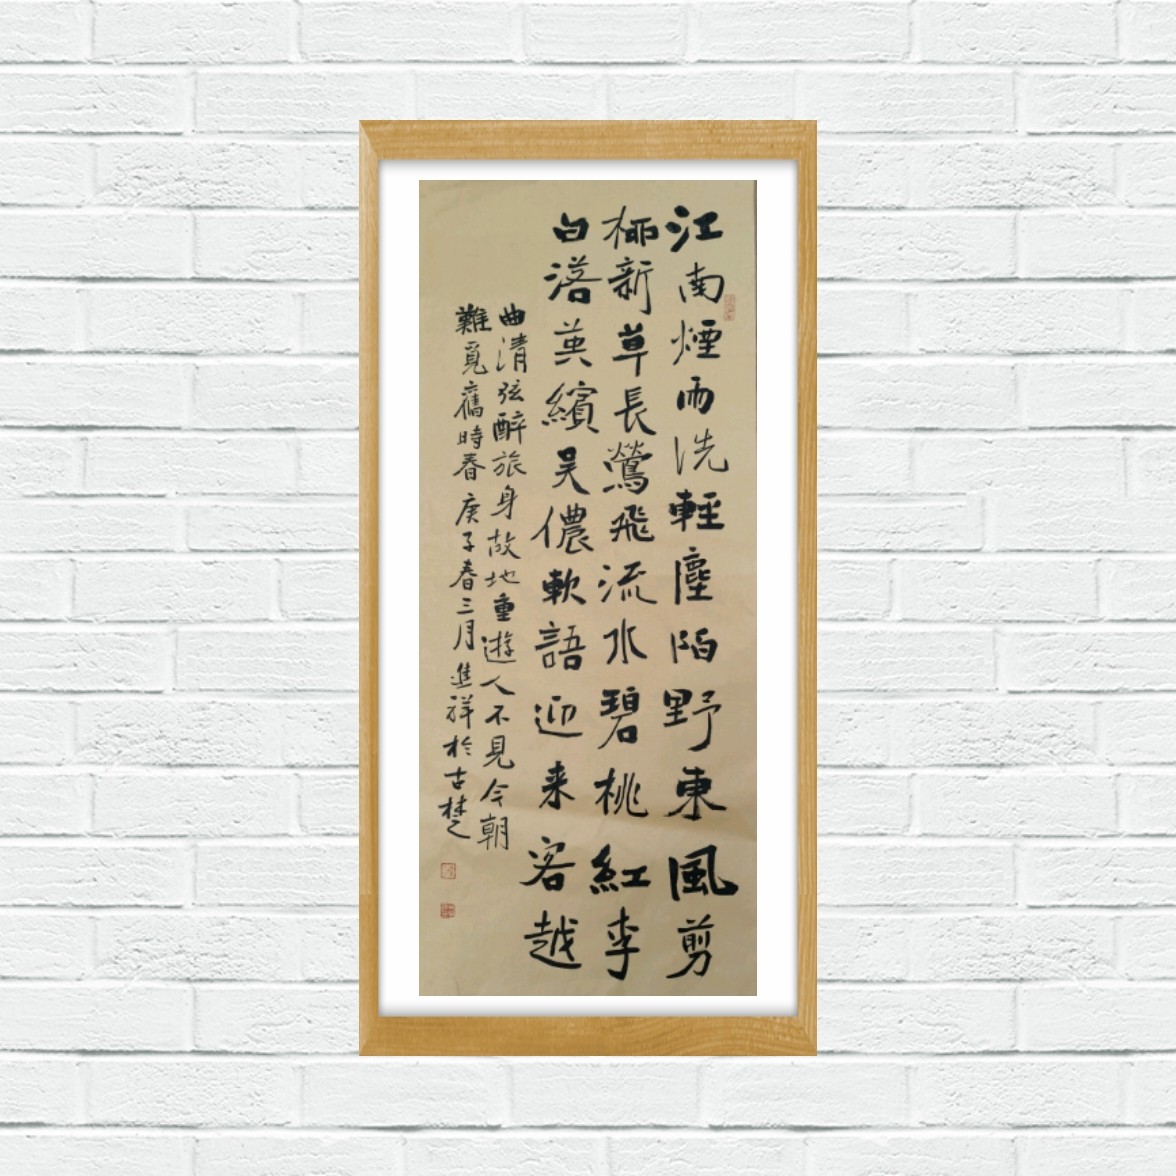 江南煙雨洗輕塵陌野東風剪
柳新草長鶯飛流水碧桃紅李
白落英繽吳儂軟語迎来客越
曲清弦醉旅身故地重遊人不見今朝
難覓舊時春 庚子春三月進祥於古楚